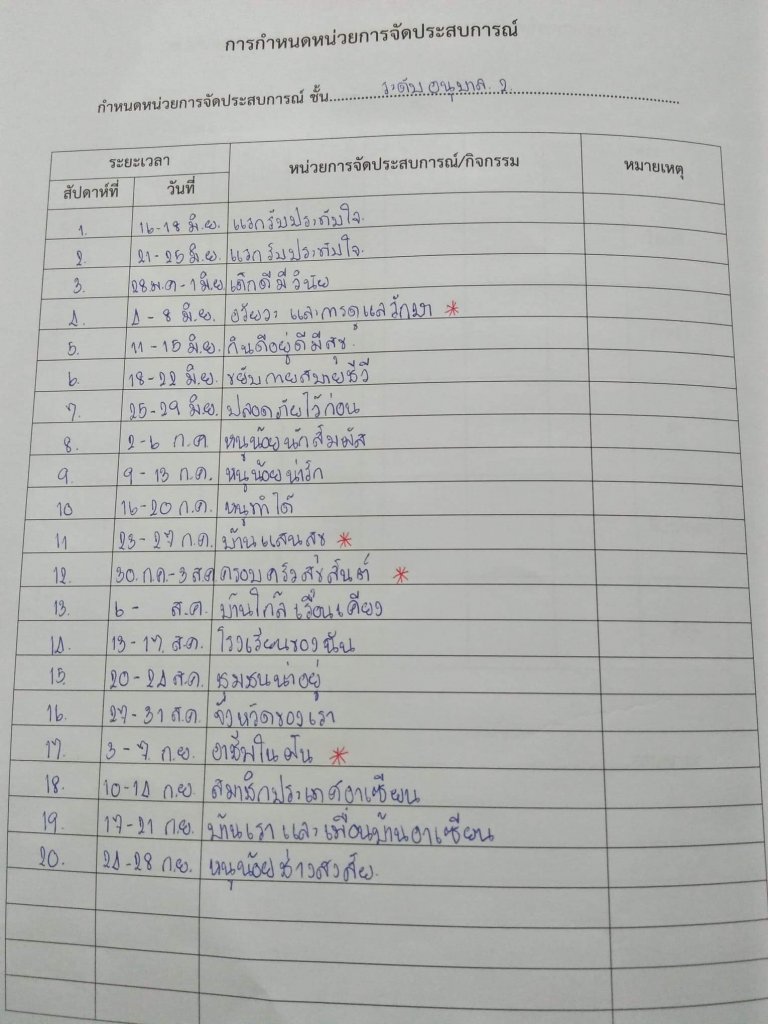 การกำหนดหน่วยการจัดประสบการณ์
กำหนดหน่วยการจัดประสบการณ์ ชั้น ระดับอนุบาล 2
ระยะเวลา หน่วยการจัดประสบการณ์/กิจกรรม หมายเหตุ
สัปดาห์ที่ วันที่
1. 16-18 มิ.ย. แรกรับประทับใจ.
2. 21-25 มิ.ย. แรกรับประทับใจ.
3. 28 พ.ค-1 มิ.ย เด็กดีมีวินัย
4. 4-8 มิ.ย. อวัยวะ และการดูแลรักษา *
5. 11-15 มิ.ย. กินดีอยู่ดีมีสุข.
6. 18-22 มิ.ย. ขยับกายสบายชีวี
7. 25-29 มิ.ย. ปลอดภัยไว้ก่อน
8. 2-6 ก.ค หนูน้อยนักสัมผัส
9. 9-13 ก.ค. หนูน้อยน่ารัก
10 16-20 ก.ค. หนูทำได้
11 23-27 ก.ค. บ้านแสนสุข *
12. 30.ก.ค-3 ส.ค ครอบครัวสุขสันต์ *
13. 6- ส.ค. บ้านใกล้เรือนเคียง
14. 13-17 ส.ค. โรงเรียนของฉัน
15. 20-24 ส.ค. ชุมชนน่าอยู่
16. 27-31 ส.ค. จังหวัดของเรา
17. 3-7 ก.ย. อาชีพในฝัน *
18. 10-14 ก.ย. สมาชิกประเทศอาเซียน
19. 17-21 ก.ย. บ้านเรา และเพื่อนบ้านอาเซียน
20. 24-28 ก.ย. หนูน้อยช่างสงสัย.